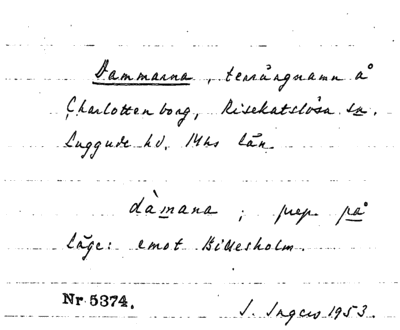 Dammarna, terrängnamn å
Charlottenborg, Risekatslösa sn.
Luggude hd. Mhs län
dàmana ; prep. på
läge: emot Billesholm.
Nr 5374.
I. Ingers 1953.